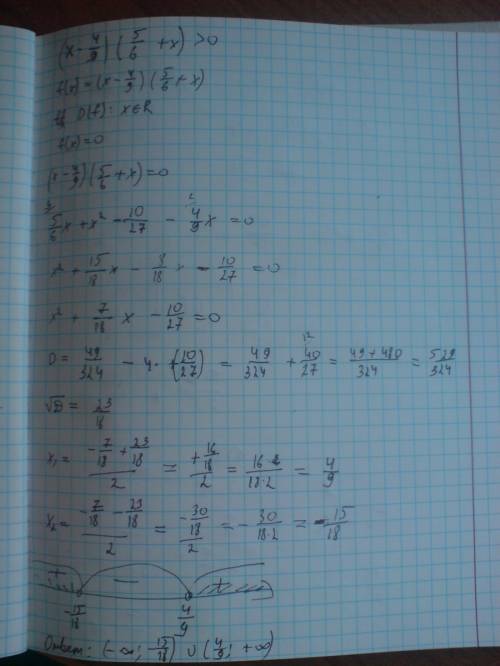 (x - 4/9)(5/6 + x) > 0
f(x) = (x - 4/9)(5/6 + x)
D(f): x ∈ R
f(x) = 0
(x - 4/9)(5/6 + x) = 0
5/6 x + x² - 10/27 - 4/9 x = 0
x² + 15/18 x - 8/18 x - 10/27 = 0
x² + 7/18 x - 10/27 = 0
D = 49/324 - 4 · (10/27) = 49/324 + 40/27 = (49 + 480)/324 = 529/324
√D = 23/18
x₁ = (-7/18 + 23/18)/2 = (+16/18)/2 = 16/(18·2) = 4/9
x₂ = (-7/18 - 23/18)/2 = (-30/18)/2 = -30/(18·2) = -15/18
+ - +
-15/18 4/9
Ответ: (-∞; -15/18) ∪ (4/9; +∞)